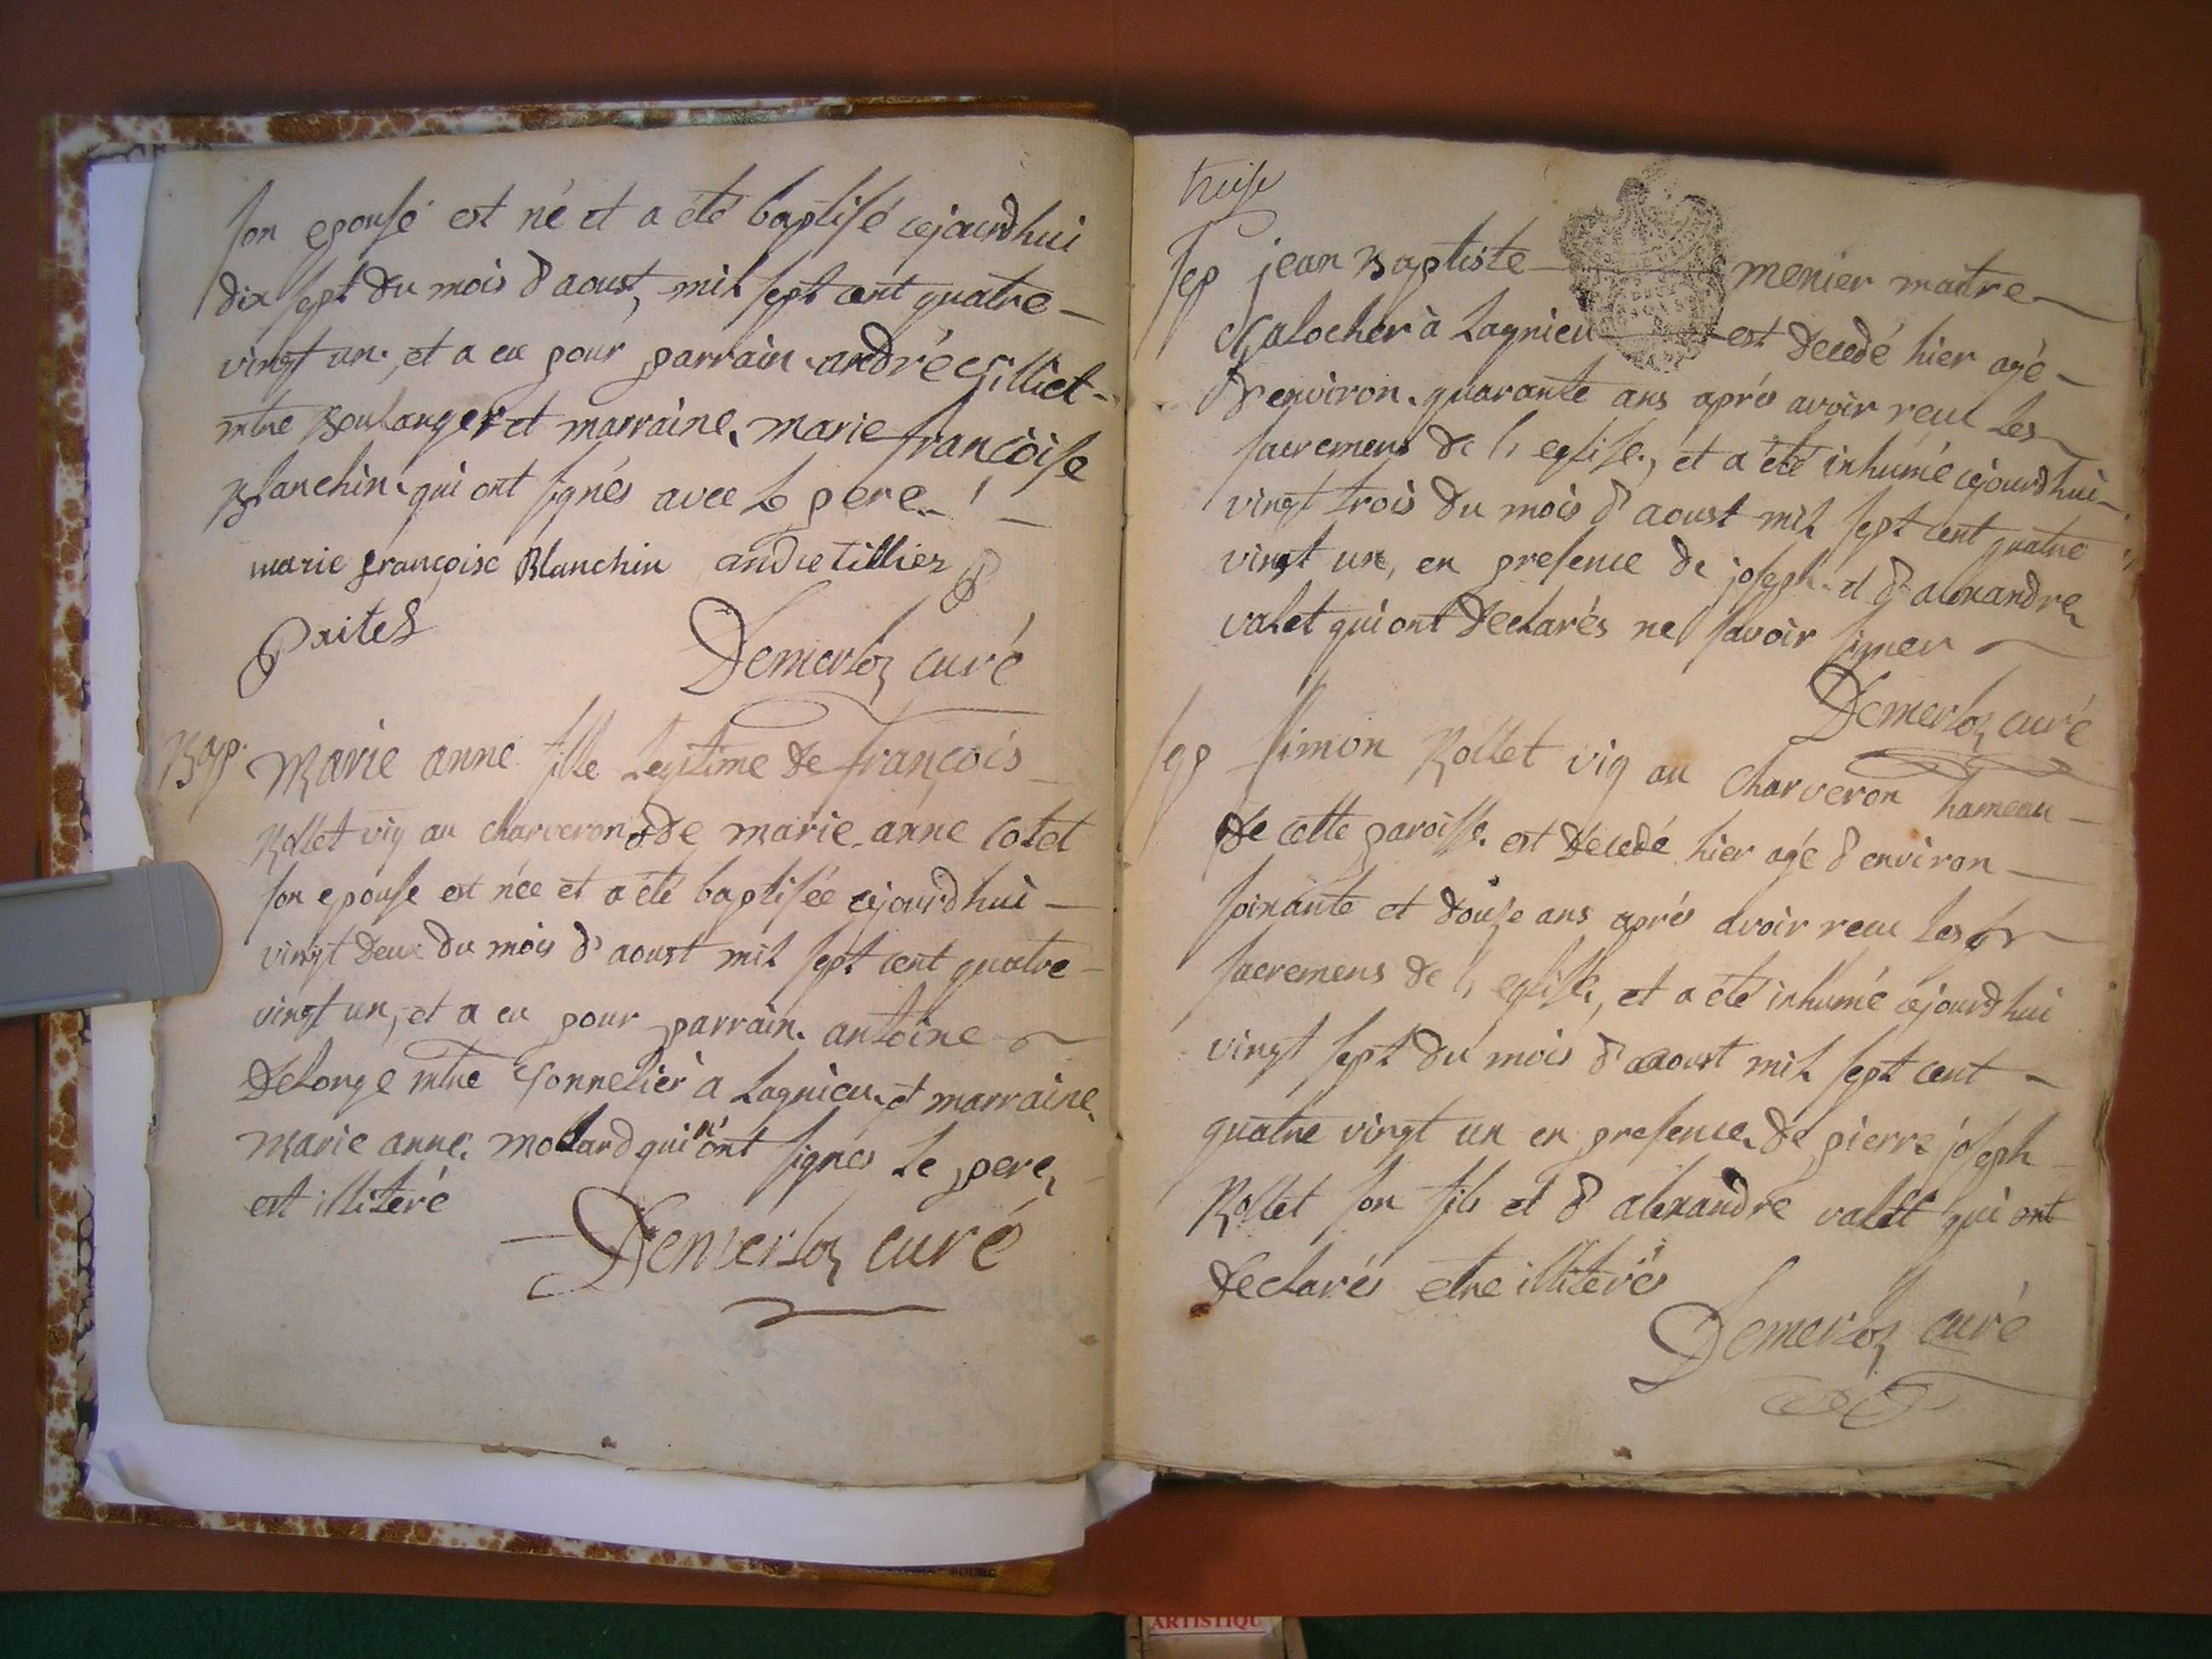 son epouse est né et a été baptisé cejourdhui
dix sept du mois d'aoust, mil sept cent quatre
vingt un, et a eu pour parrain andré Tilliet
mtre Boulanger et marraine marie françoise
Blanchin qui ont signés avec le pere
marie françoise Blanchin andre tillier
Demerloz curé
Bap. Marie anne fille Legitime de françois
Rollet vig au charveron & de marie anne Cotet
son epouse est née et a été baptisée cejourdhui
vingt Deux du mois d'aoust mil sept cent quatre
vingt un, et a eu pour parrain antoine
Delonge mtre Tonnelier a Lagnieu et marraine
Marie anne molard qui n'ont signés le pere
est illiteré
Demerloz curé
treise
Sep jean Baptiste menier maitre
Galocher à Lagnieu est Decedé hier agé
D'environ quarante ans aprés avoir reçu Les
sacremens de l'eglise, et a été inhumé cejourdhui
vingt trois du mois d'aoust mil sept cent quatre
vingt un, en presence de joseph et d'alexandre
valet qui ont Declarés ne savoir signer
Demerloz curé
Sep Simon Rollet vig au Charveron hameau
De cette paroisse est Décedé hier agé d'environ
soixante et douze ans aprés avoir reçu Les
sacremens de l'eglise, et a été inhumé cejourdhui
vingt sept du mois d'aaoust mil sept cent
quatre vingt un en presence de pierre joseph
Rollet son fils et d'alexandre valett qui ont
Declarés etre illiterés
Demerloz curé
ARTISTIQU